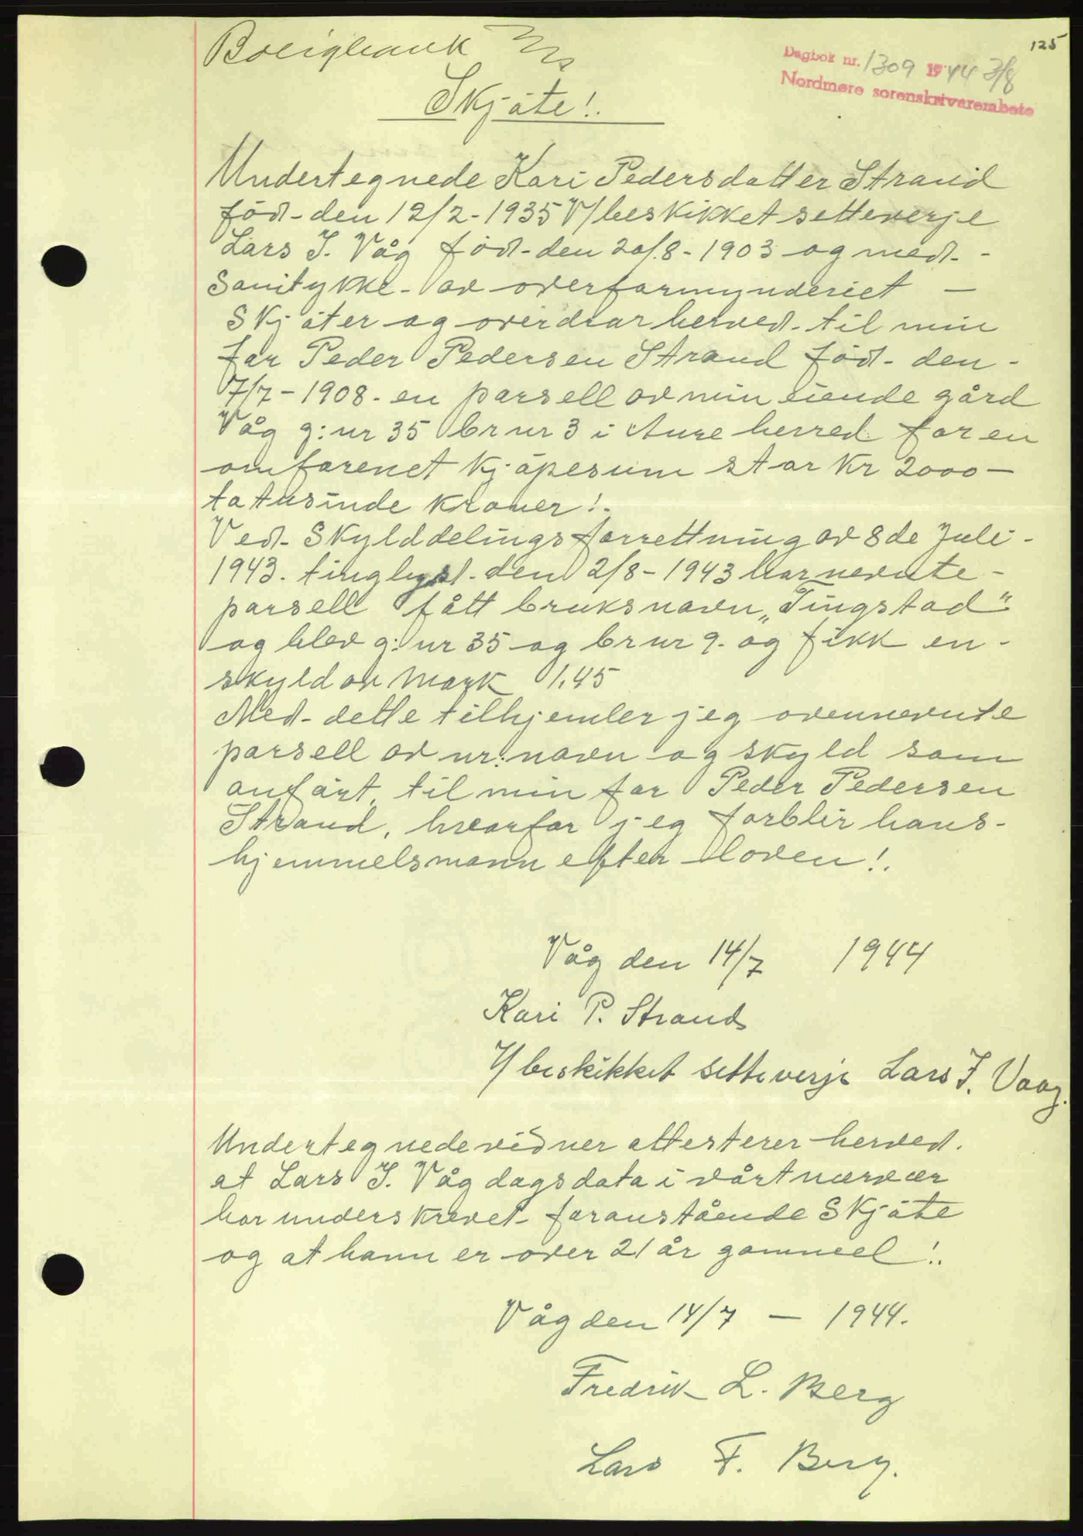 125
Dagbok nr. 1309 1944 3/8
Nordmøre sorenskriverembete
Skjøte!.
Undertegnede Kari Pedersdatter Strand
född den 12/2-1935 V/beskikket setteverje
Lars J. Våg född den 20/8-1903 og med-
Samtykke- av overformynderiet —
Skjøter og overdrar herved til min
far Peder Pedersen Strand född den -
7/7-1908- en parsell av min eiende gård
Våg g:nr 35 br nr 3 i Aure herred for en
omforenet kjøpesum stor kr 2000—
totusinde kroner!.
Ved Skylddelingsforrettning av 8de Juli-
1943. tinglyst den 2/8-1943 har nevnte-
parsell fått bruksnavn „Tingstad"
og blev g:nr 35 og br nr 9. og fikk en-
skyld av Mark 1.45
Med dette tilhjemler jeg ovennevnte
parsell av nr: navn og skyld som
anført, til min far Peder Pedersen
Strand, hvorfor jeg forblir hans-
hjemmelsmann efter loven!.
Våg den 14/7 1944
Kari P. Strand
V/ beskikket setteverje Lars J. Vaag.
Undertegnede vidner attesterer herved.
at Lars J. Våg dags dato i vårt nærvær
har underskrevet foranstående Skjøte
og at hann er over 21 år gammel!.
Våg den 14/7 — 1944.
Fredrik L. Berg
Lars F. Berg.